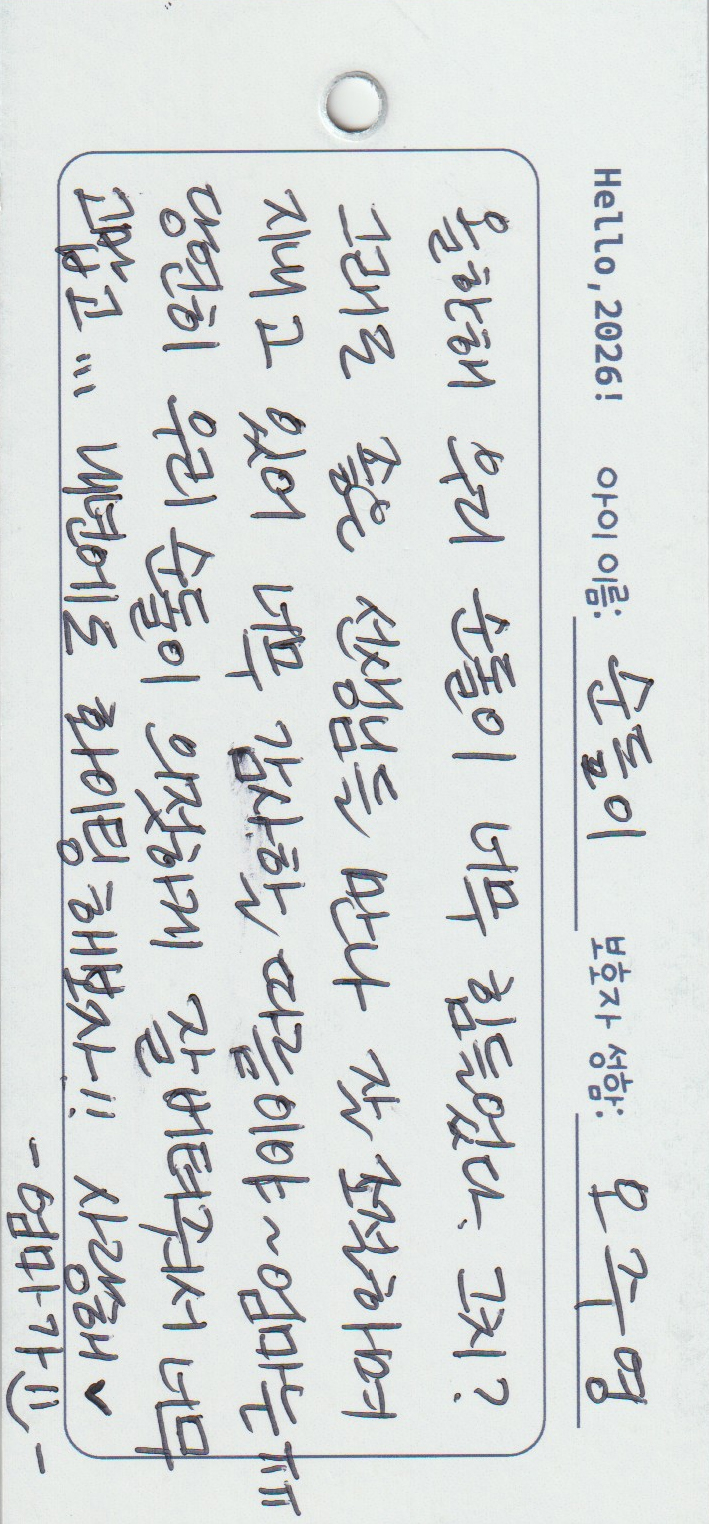 Hello, 2026! 아이 이름: 순돌이 보호자 성함: 오주영
올한해 우리 순돌이 너무 힘들었다. 그치?
그래도 좋은 선생님들 만나 잘 조절하며
지내고 있어 너무 감사할 따름이야~ 엄마는 ㅠㅠ
당연히 우리 순돌이 의젓하게 잘 버텨줘서 너무
고맙고... 내년에도 화이팅 해보자!! 사랑해♥
- 엄마가 :) -